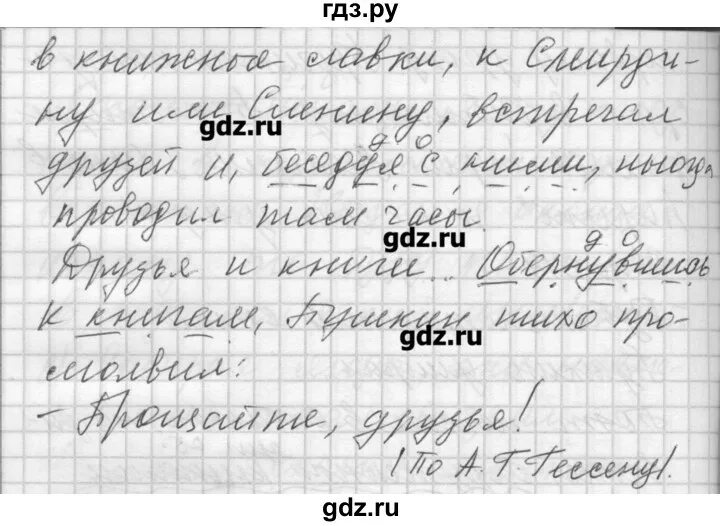 гдз.ру
в книжные лавки, к Смирди-
ну или Сленину, встречал
gdz.ru
д о
друзей и, беседуя с ними, иногда
проводил там часы.
gdz.ru
д о
Друзья и книги... Обернувшись
к книгам, Пушкин тихо про-
gdz.ru
молвил:
- Прощайте, друзья!
(По А. Г. Гессену).
gdz.ru